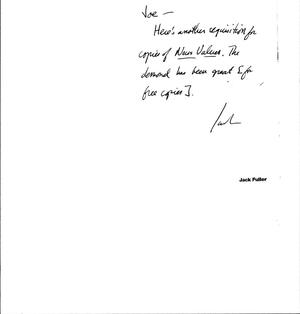 Joe —
Here's another requisition for
copies of News Values. The
demand has been great [for
free copies].
Jack
Jack Fuller